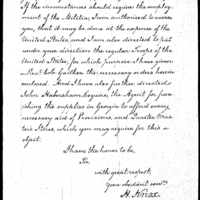 If the circumstances should require the employ-
ment of the Militia, I am authorised to assure
you, that it may be done at the expense of the
United States, and I am also directed to put
under your direction the regular Troops of the
United States, for which purpose I have given
Lieut. Colo Gaither the necessary orders herein
inclosed. And I have also further directed
John Habersham Esquire, the Agent for fur-
nishing the supplies in Georgia to afford every
necessary aid of Provisions, and Quarter Mas-
ters Stores, which you may require for this o
bject.
I have the honor to be,
Sir
with great respect,
Your obedient serv.
H. Knox.